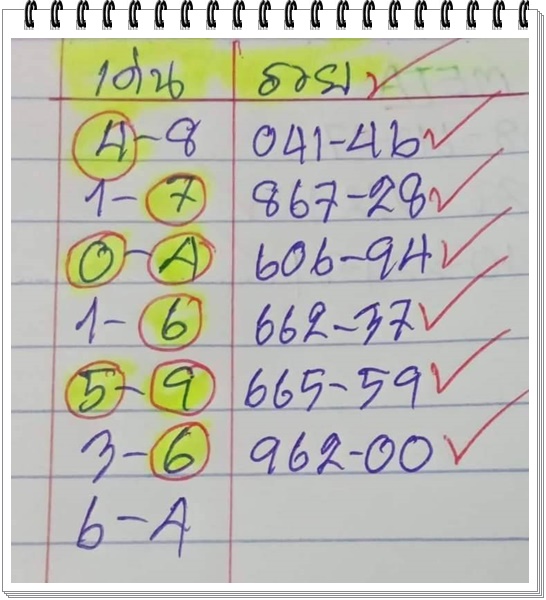 เด่น รวย
4-8 041-46
1-7 867-28
0-4 606-94
1-6 662-37
5-9 665-59
3-6 962-00
6-4